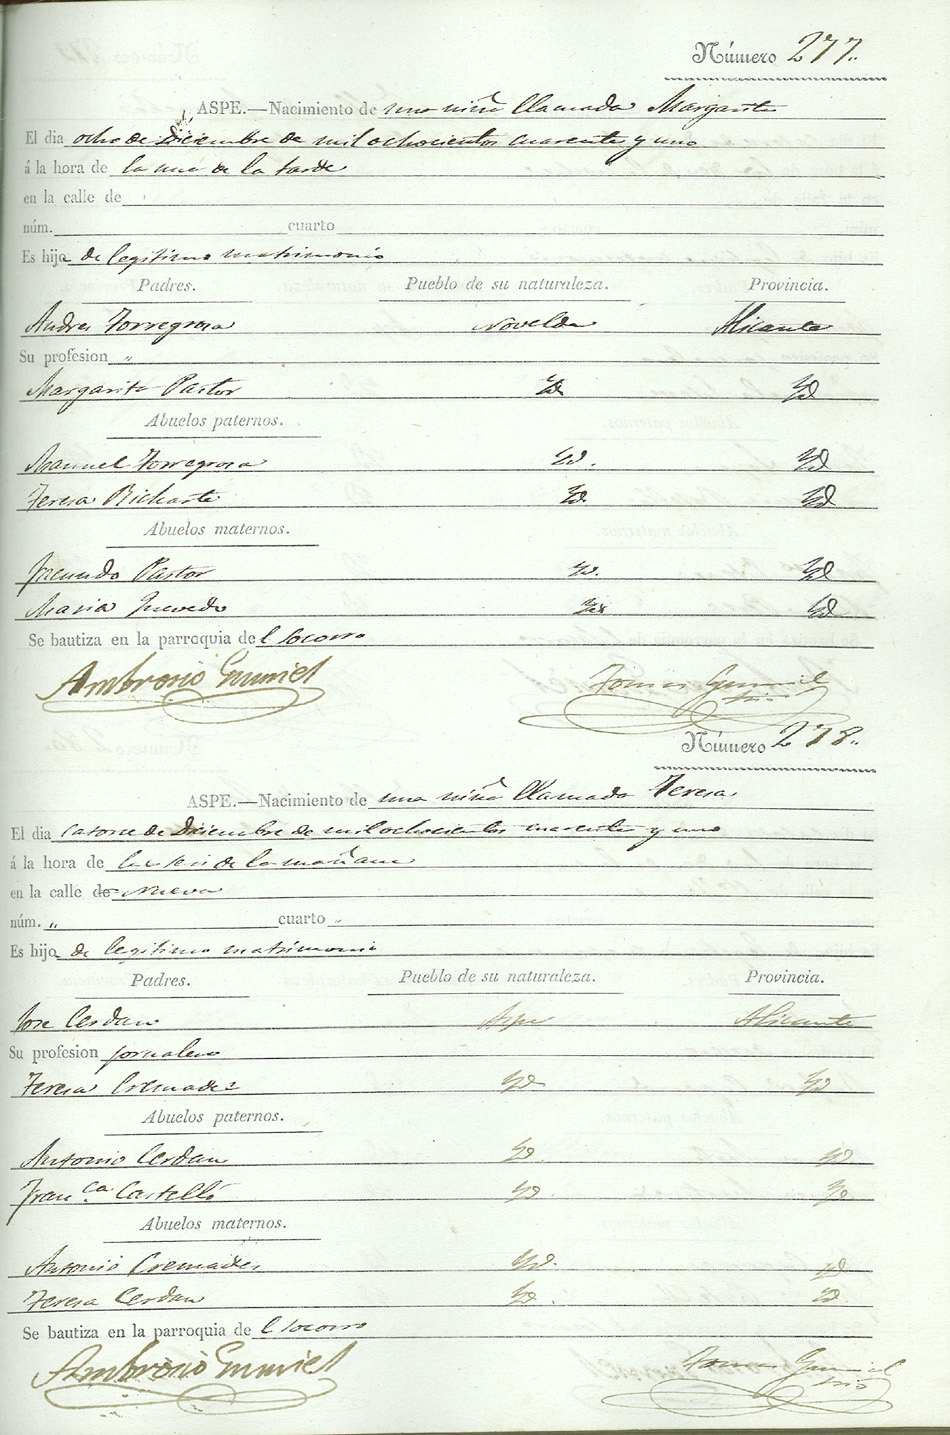 Número 277.
ASPE.—Nacimiento de una niña llamada Margarita
El dia ocho de Diciembre de mil ochocientos cuarenta y uno
á la hora de la una de la tarde
en la calle de
núm. cuarto
Es hija de legitimo matrimonio
Padres. Pueblo de su naturaleza. Provincia.
Andres Torregrosa Novelda Alicante
Su profesion "
Margarita Pastor Yd Yd
Abuelos paternos.
Manuel Torregrosa Yd. Yd
Teresa Richarte Yd. Yd
Abuelos maternos.
Facundo Pastor Yd. Yd
Maria Quevedo Yd Yd
Se bautiza en la parroquia del Socorro
Ambrosio Gumiel Tomas Gumiel
Número 278.
ASPE.—Nacimiento de una niña llamada Teresa
El dia catorce de Diciembre de mil ochocientos cuarenta y uno
á la hora de las seis de la mañana
en la calle de Nueva
núm. " cuarto "
Es hija de legitimo matrimonio
Padres. Pueblo de su naturaleza. Provincia.
Jose Cerdan Aspe Alicante
Su profesion jornalero
Teresa Cremades Yd Yd
Abuelos paternos.
Antonio Cerdan Yd. Yd
Franca Castelló Yd. Yd
Abuelos maternos.
Antonio Cremades Yd. Yd
Teresa Cerdan Yd. Yd.
Se bautiza en la parroquia del Socorro
Ambrosio Gumiel Tomas Gumiel